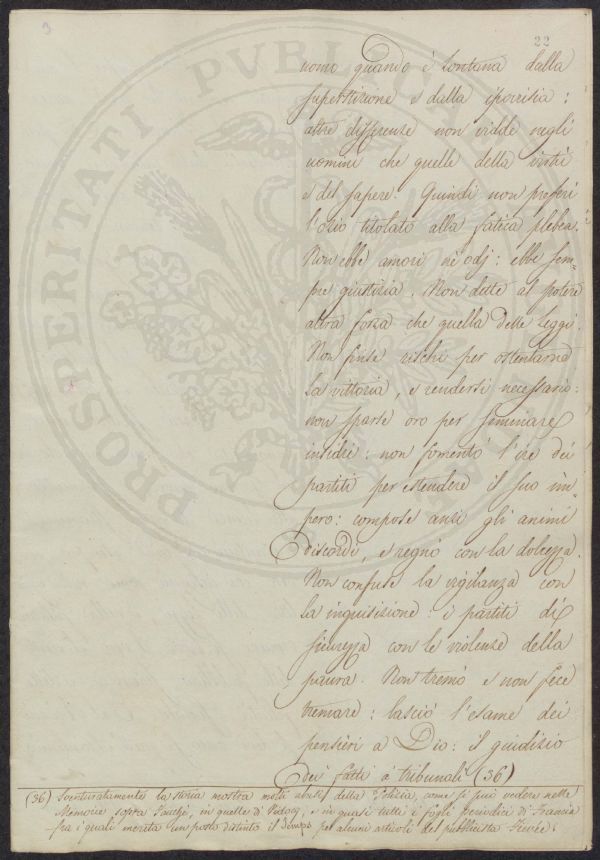 3
22
uomo quando è lontana dalla
superstizione e dalla ipocrisia:
altre differenze non vidde negli
uomini che quelle della virtù
e del sapere. Quindi non preferì
l'ozio titolato alla fatica plebea.
Non ebbe amori nè odj: ebbe sem=
pre giustizia. Non dette al potere
altra forza che quella delle Leggi.
Non finse rischi per ostentarne
la vittoria, e rendersi necessario:
non sparse oro per seminare
insidie: non fomentò l'ire dei
partiti per estendere il suo im=
pero: compose anzi gli animi
discordi, e regnò con la dolcezza.
Non confuse la vigilanza con
la inquisizione: i partiti di
sicurezza con le violenze della
paura. Non tremò e non fece
tremare: lasciò l'esame dei
pensieri a Dio: il giudizio
dei fatti a tribunali (36)
(36) Sventuratamente la storia mostra molti abusi della Polizia, come si può vedere nelle
Memorie sopra Fouché, in quelle di Vidocq, e in quasi tutti i fogli periodici di Francia
fra i quali merita un posto distinto il Temps per alcuni articoli del pubblicista Fievée.
PROSPERITATI PUBLICAE